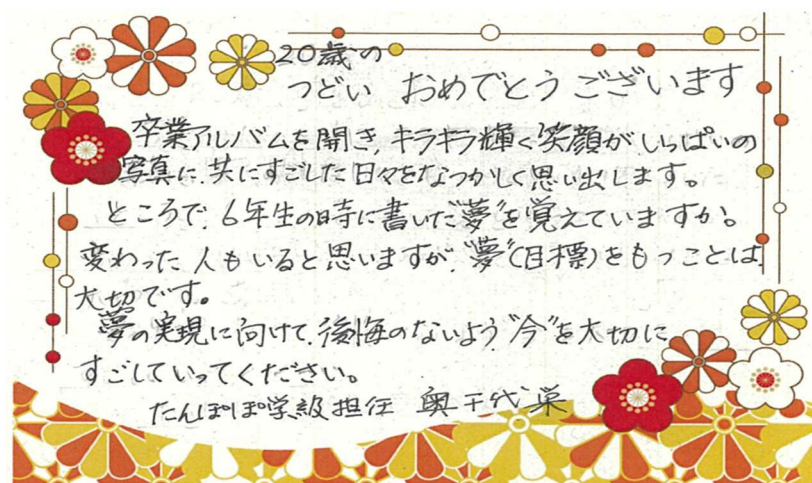 20歳の
つどい おめでとうございます
卒業アルバムを開き、キラキラ輝く笑顔がいっぱいの
写真に、共にすごした日々をなつかしく思い出します。
ところで、6年生の時に書いた“夢”を覚えていますか。
変わった人もいると思いますが、“夢”(目標)をもつことは
大切です。
夢の実現に向けて、後悔のないよう“今”を大切に
すごしていってください。
たんぽぽ学級担任 奥千代栄